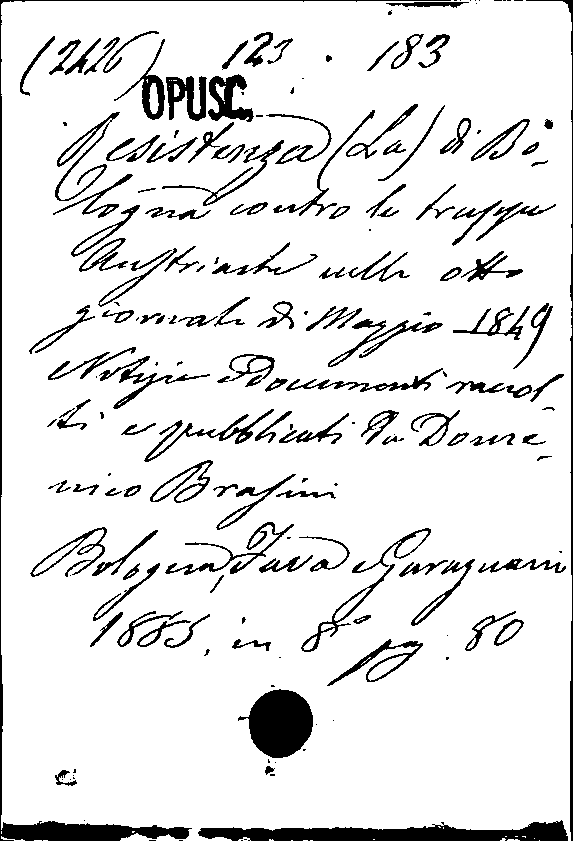 (2426) 123 . 183
OPUSC.
Resistenza (La) di Bo-
logna contro le truppe
Austriache nelle otto
giornate di Maggio 1849
Notizie e Documenti raccol-
ti e pubblicati da Dome-
nico Brasini
Bologna, Fava e Garagnani
1885, in 8° pg. 80